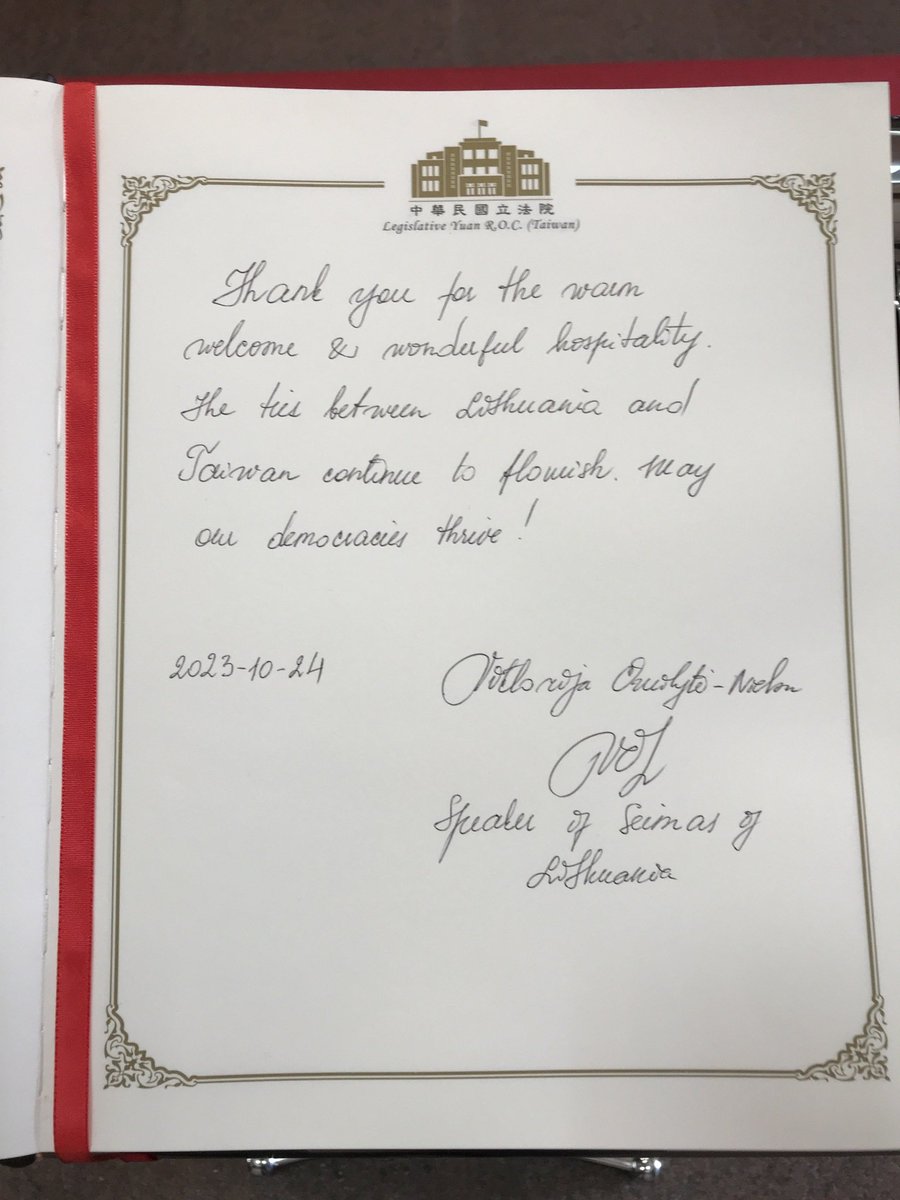 中華民國立法院
Legislative Yuan R.O.C. (Taiwan)
Thank you for the warm
welcome & wonderful hospitality.
The ties between Lithuania and
Taiwan continue to flourish. May
our democracies thrive!
2023-10-24
Viktorija Čmilytė-Nielsen
Speaker of Seimas of
Lithuania